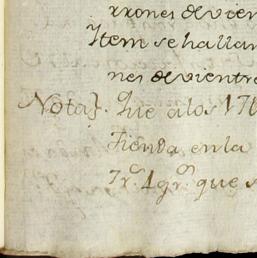 rrones de vien
Item se hallan
nes de vientre
Nota}. Que a los 176
Tienda, en la
7rs. 1 gr. que s